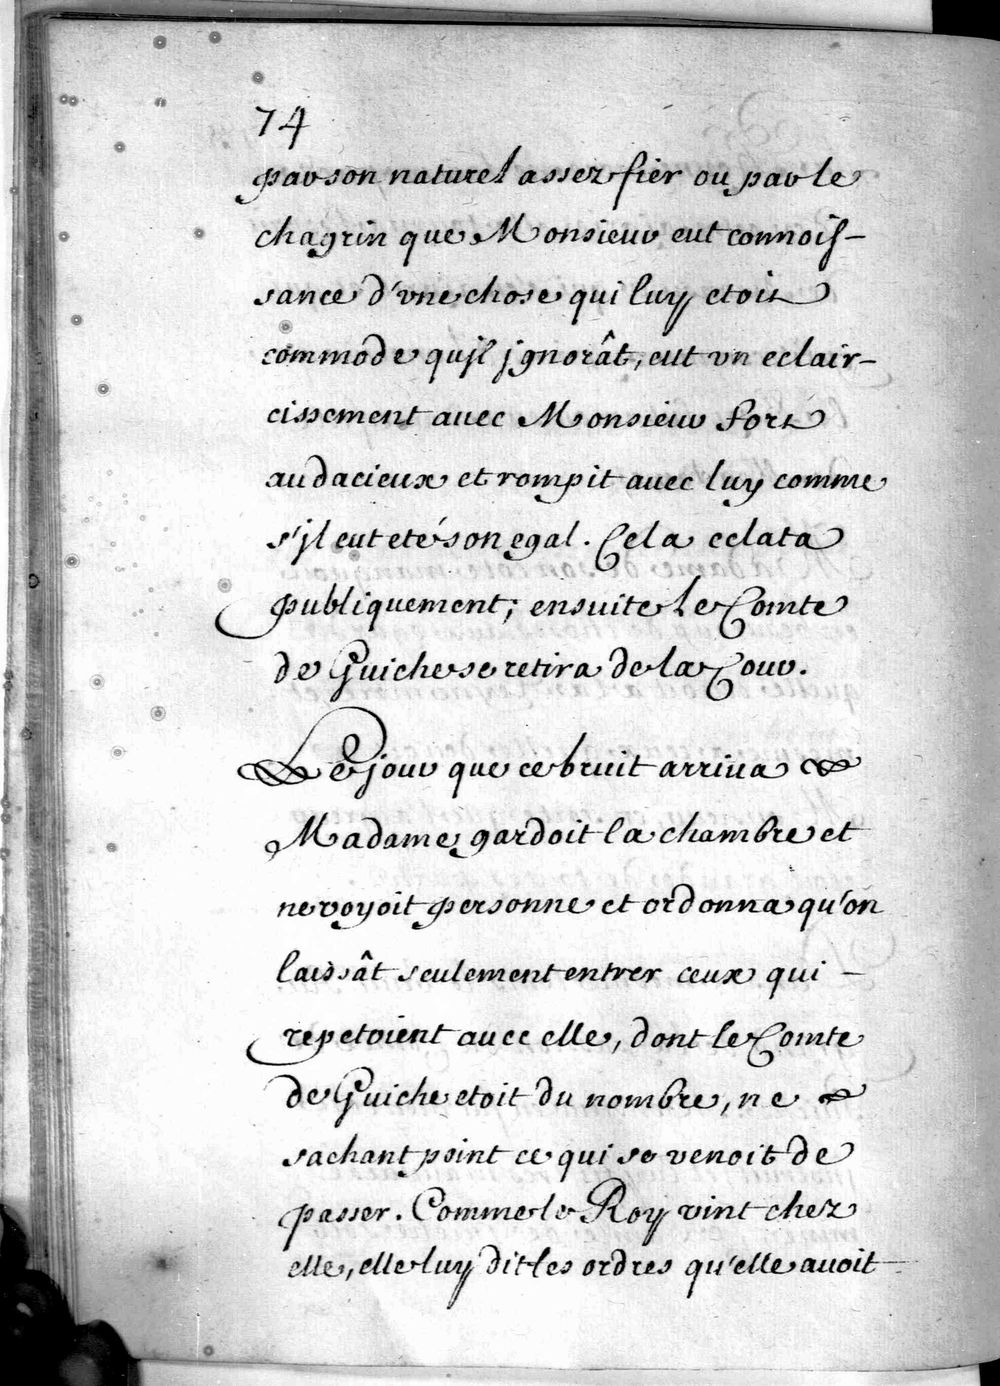 74
par son naturel assez fier ou par le
chagrin que Monsieur eut connois-
sance d'vne chose qui luy etoit
commode qu'jl jgnorât, eut vn eclair-
cissement avec Monsieur fort
audacieux et rompit avec luy comme
s'jl eut eté son egal. Cela eclata
publiquement; ensuite le Comte
de Guiche se retira de la Cour.
Le jour que ce bruit arriua
Madame gardoit la chambre et
ne voyoit personne et ordonna qu'on
laissât seulement entrer ceux qui -
repetoient auec elle, dont le Comte
de Guiche etoit du nombre, ne
sachant point ce qui se venoit de
passer. Comme le Roy vint chez
elle, elle luy dit les ordres qu'elle auoit